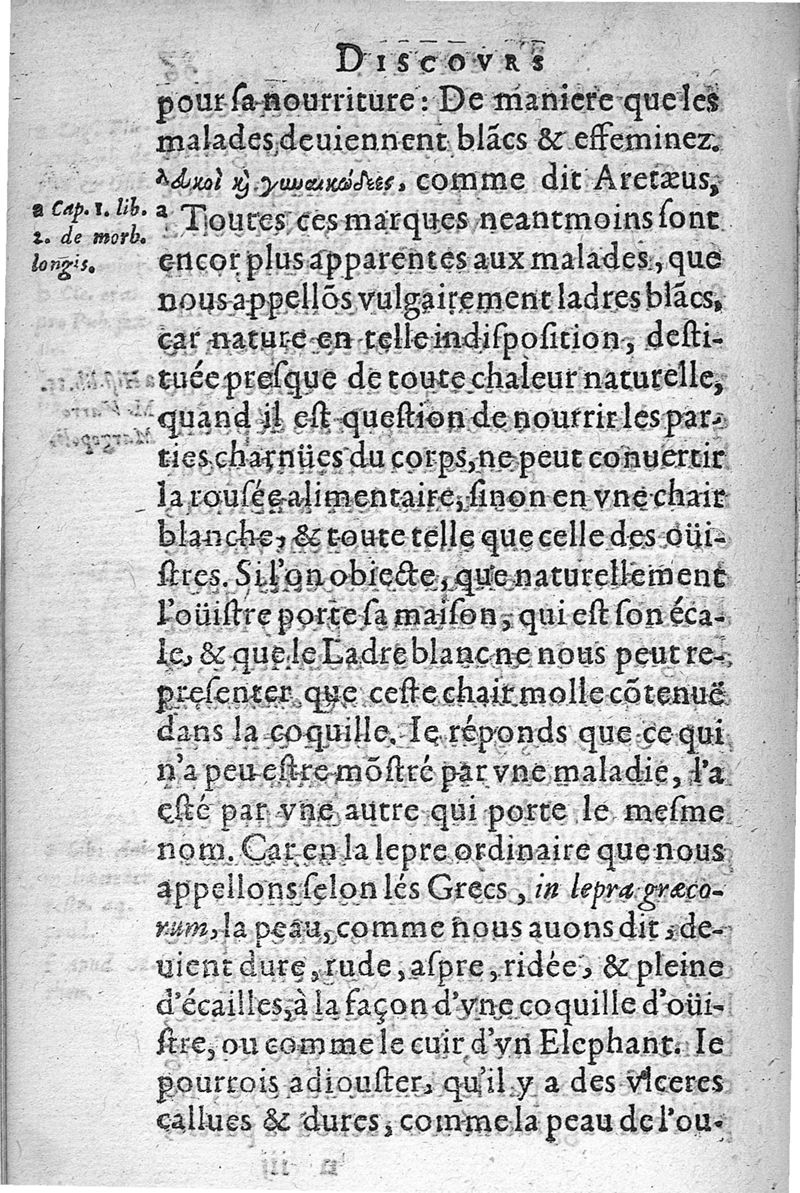 DISCOVRS
pour ſa nourriture : De maniere que les
malades deuiennent blãcs & effeminez.
comme dit Aretæus,
a Cap. 1. lib.
2. de morb.
longis.
a Toutes ces marques neantmoins ſont
encor plus apparentes aux malades, que
nous appellõs vulgairement ladres blãcs,
car nature en telle indiſpoſition, deſti-
tuée preſque de toute chaleur naturelle,
quand il eſt queſtion de nourrir les par-
ties charnües du corps, ne peut conuertir
la rouſée alimentaire, ſinon en vne chair
blanche, & toute telle que celle des oüi-
ſtres. Si l'on obiecte, que naturellement
l'oüiſtre porte ſa maiſon, qui eſt ſon éca-
le, & que le Ladre blanc ne nous peut re-
preſenter que ceſte chair molle cõtenuë
dans la coquille. Ie réponds que ce qui
n'a peu eſtre mõſtré par vne maladie, l'a
eſté par vne autre qui porte le meſme
nom. Car en la lepre ordinaire que nous
appellons ſelon lés Grecs, in lepra græco-
rum, la peau, comme nous auons dit, de-
uient dure, rude, aſpre, ridée, & pleine
d'écailles, à la façon d'vne coquille d'oüi-
ſtre, ou comme le cuir d'vn Elephant. Ie
pourrois adiouſter, qu'il y a des vlceres
callues & dures, comme la peau de l'ou-